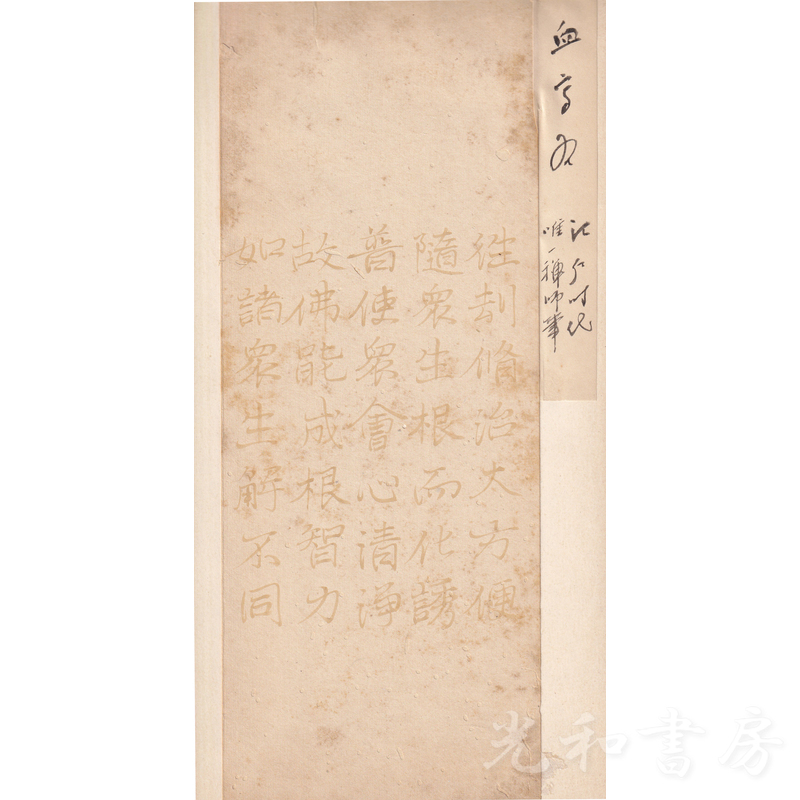 血
江戸时代
唯一禅师筆
往劫脩治大方便
隨衆生根而化誘
普使衆會心清淨
故佛能成根智力
如諸衆生解不同
光和書房